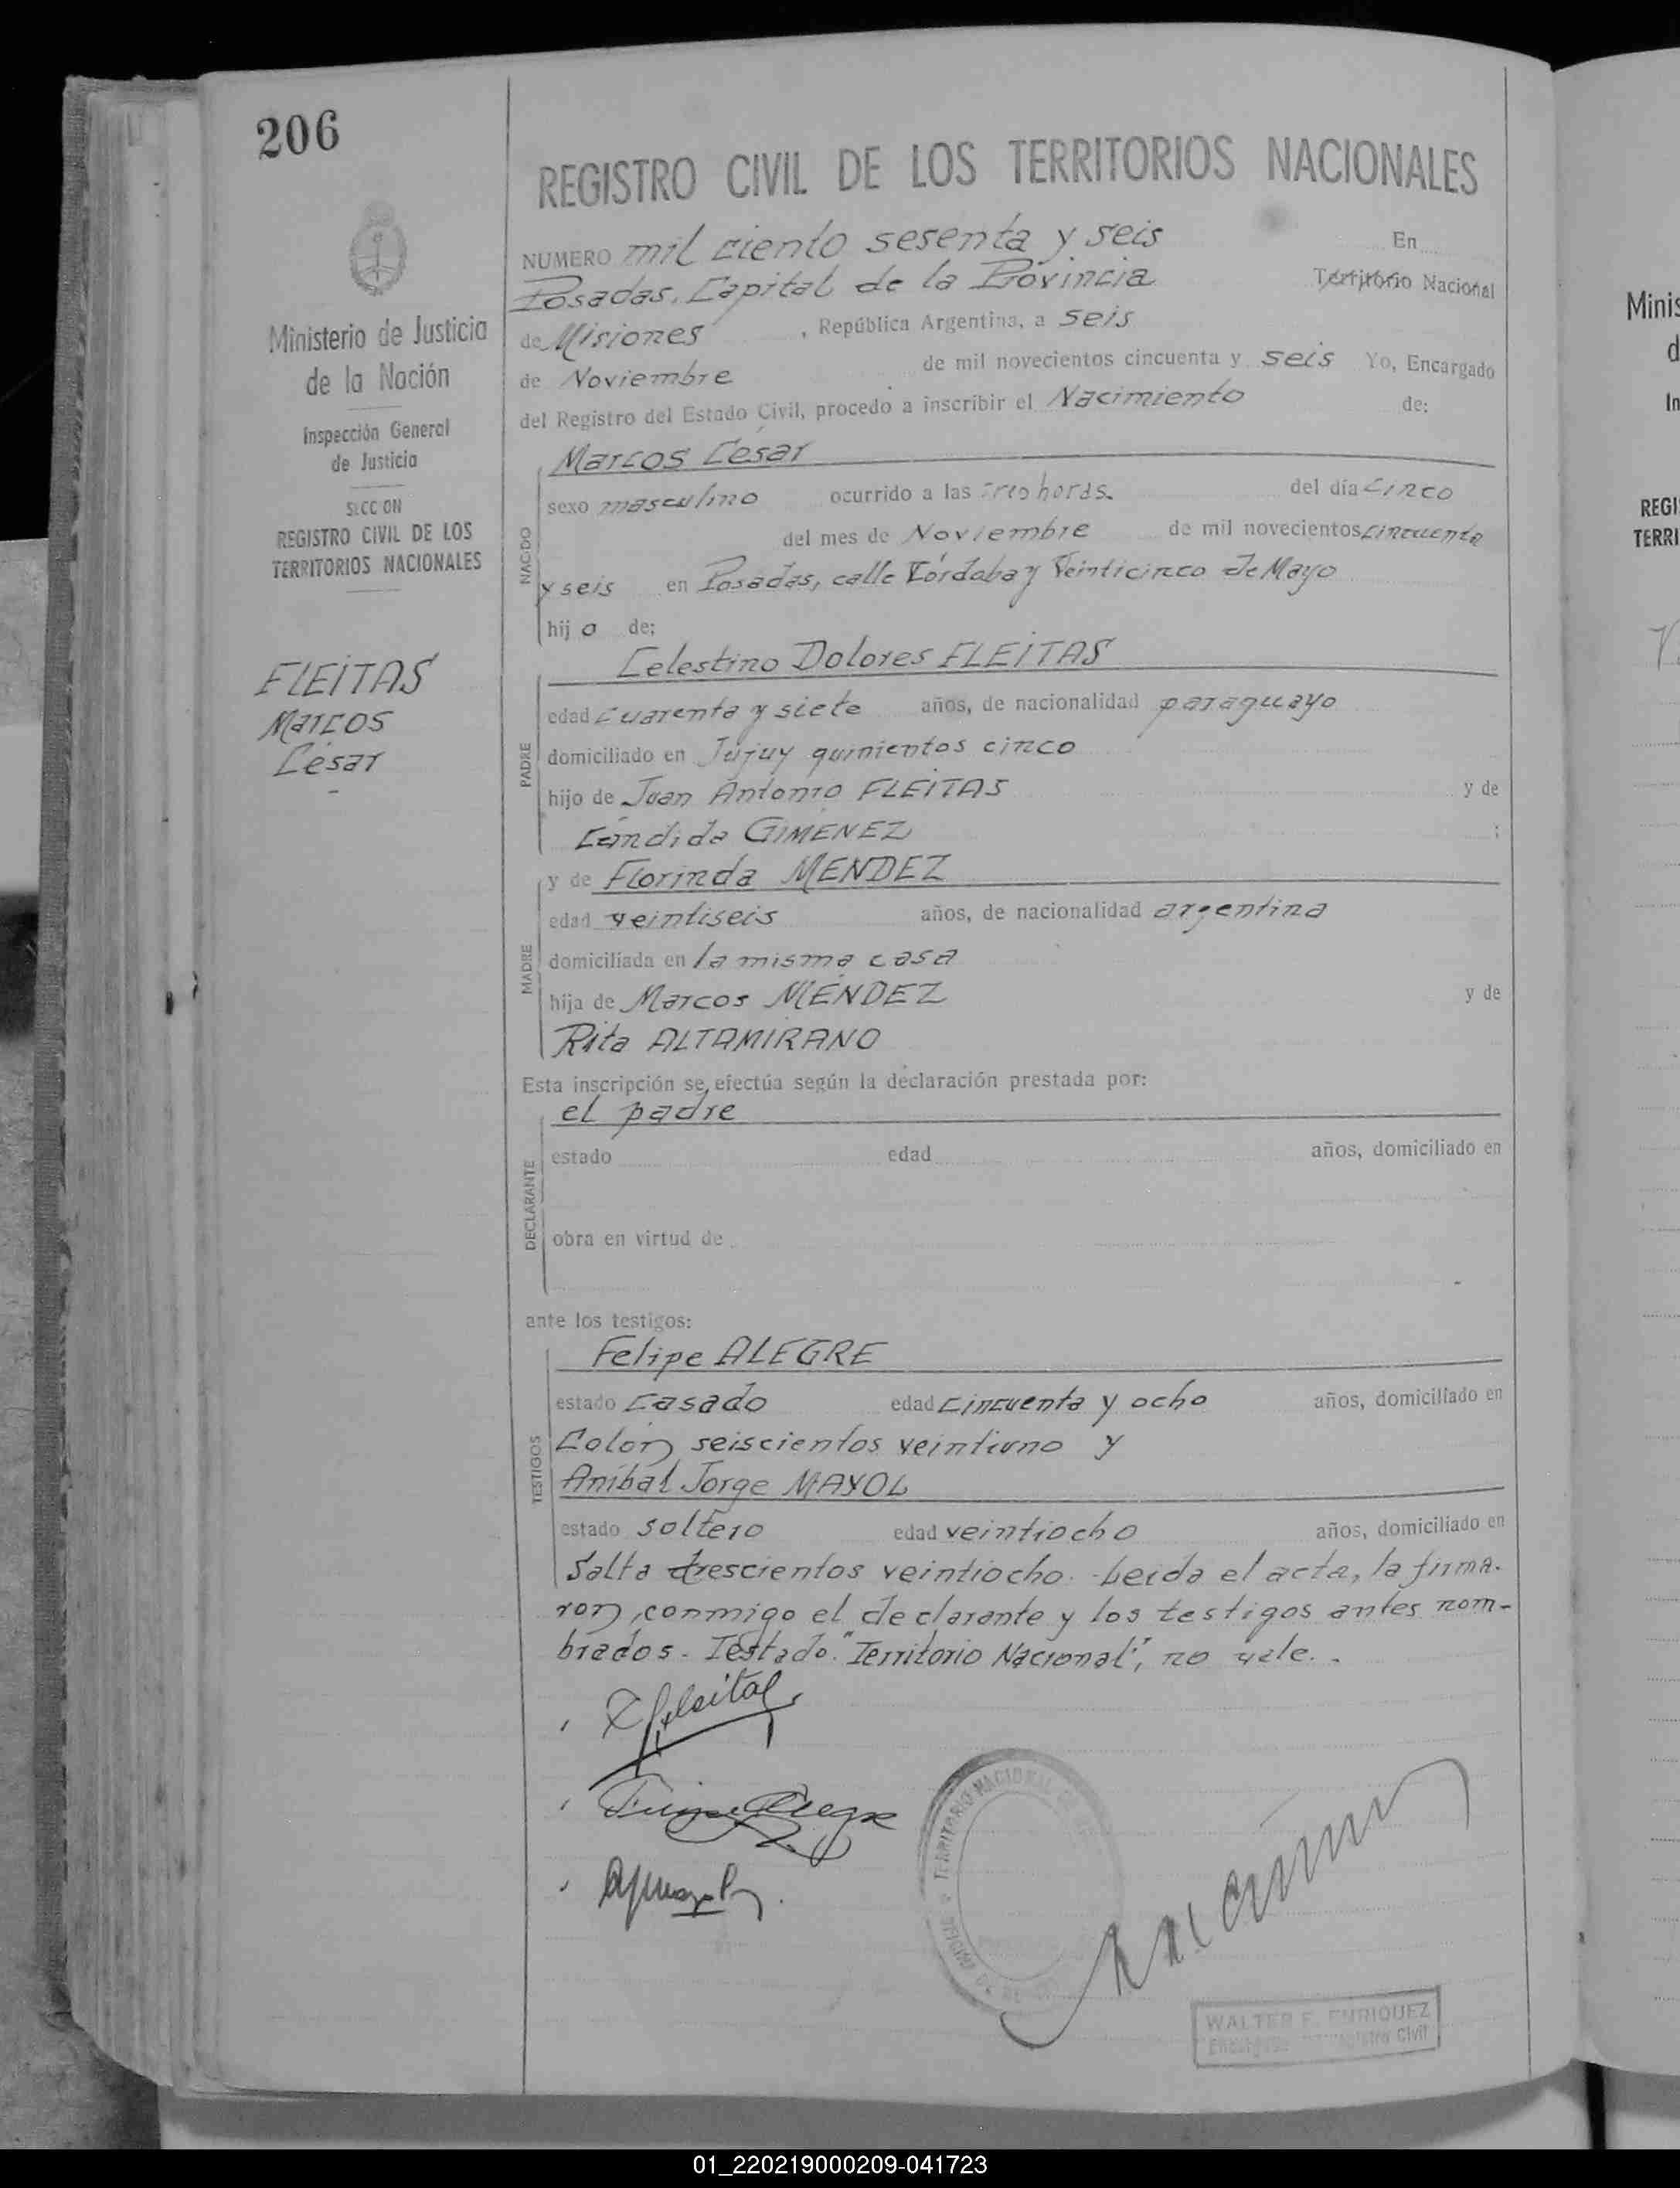 206
REGISTRO CIVIL DE LOS TERRITORIOS NACIONALES
Ministerio de Justicia
de la Nación
Inspección General
de Justicia
SECCION
REGISTRO CIVIL DE LOS
TERRITORIOS NACIONALES
FLEITAS
Marcos
César
NUMERO mil ciento sesenta y seis En
Posadas, Capital de la Provincia Territorio Nacional
de Misiones, República Argentina, a seis
de Noviembre de mil novecientos cincuenta y seis Yo, Encargado
del Registro del Estado Civil, procedo a inscribir el Nacimiento de:
NACIDO
Marcos César
sexo masculino ocurrido a las tres horas. del día cinco
del mes de Noviembre de mil novecientos cincuenta
y seis en Posadas, calle Córdoba y Veinticinco de Mayo
hijo de:
PADRE
Celestino Dolores FLEITAS
edad cuarenta y siete años, de nacionalidad paraguayo
domiciliado en Jujuy quinientos cinco
hijo de Juan Antonio FLEITAS y de
Cándida GIMENEZ ;
MADRE
y de Florinda MENDEZ
edad veintiseis años, de nacionalidad argentina
domiciliada en la misma casa
hija de Marcos MÉNDEZ y de
Rita ALTAMIRANO
Esta inscripción se efectúa según la declaración prestada por:
DECLARANTE
el padre
estado edad años, domiciliado en
obra en virtud de
ante los testigos:
TESTIGOS
Felipe ALEGRE
estado casado edad cincuenta y ocho años, domiciliado en
Colón seiscientos veintiuno y
Aníbal Jorge MAYOL
estado soltero edad veintiocho años, domiciliado en
Salta trescientos veintiocho. Leída el acta, la firma-
ron, conmigo el declarante y los testigos antes nom-
brados. Testado: "Territorio Nacional", no vale.
Fleitas
Alegre
TERRITORIO NACIONAL
WALTER E. ENRIQUEZ
Encargado Registro Civil
Minis
d
In
REGI
TERRI
01_220219000209-041723